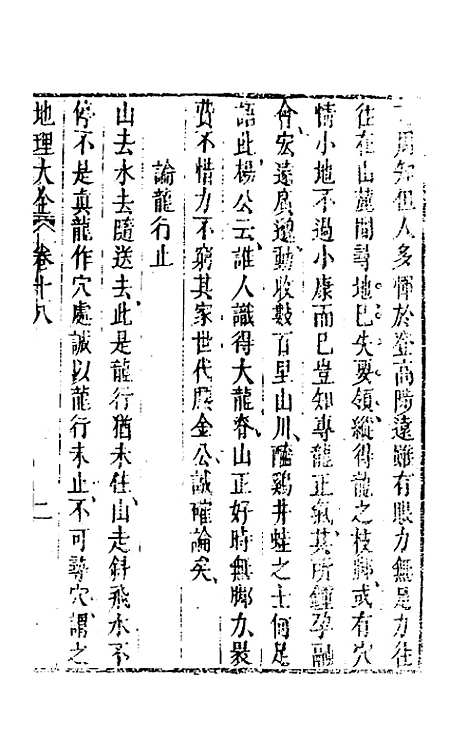 周知但人多憚於登高陟遠雖有眼力無足力往
往在山麓間尋地已失要領縱得龍之枝脚或有穴
情小地不過小康而已豈知專龍正氣其所鍾孕融
會宏遠廣邈動收數百里山川醯鷄井蛙之士何足
語此楊公云誰人識得大龍脊山正好時無脚力裹
費不惜力不窮其家世代腰金公誠確論矣
論龍行止
山去水去隨送去此是龍行猶未住山走斜飛水不
停不是真龍作穴處誠以龍行未止不可尋穴謂之
地理大全 卷十八 二